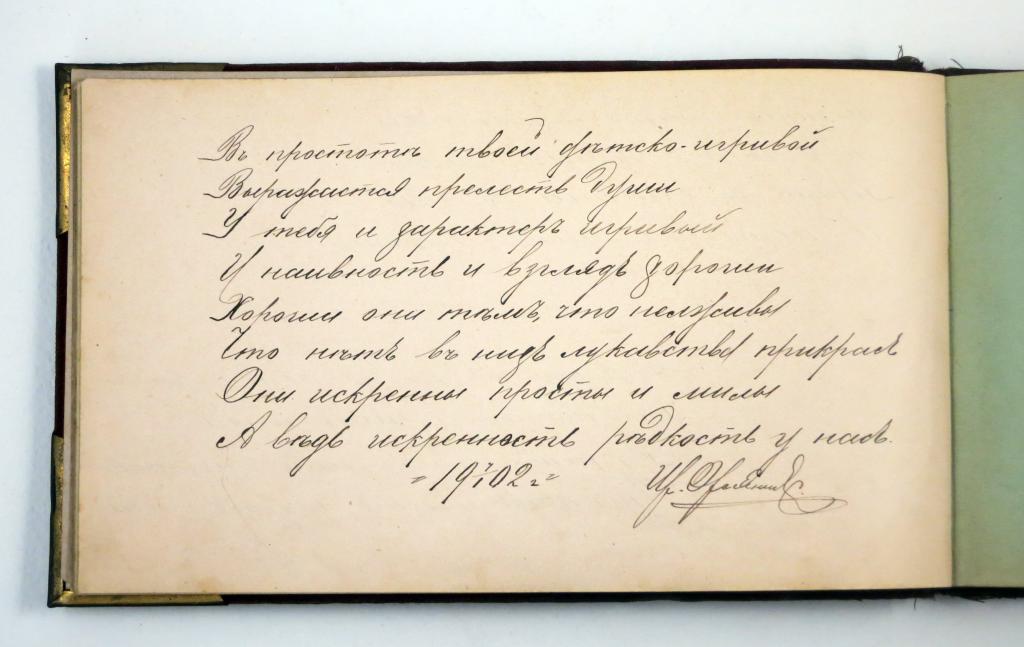 Въ простотѣ твоей дѣтско-игривой
Выражается прелесть души
У тебя и характеръ игривый
И наивность и взглядъ хороши
Хороши они тѣмъ, что нелживы
Что нѣтъ въ нихъ лукавства прикрасъ
Они искренны просты и милы
А вѣдь искренность рѣдкость у насъ.
"19 7/I 02 г"